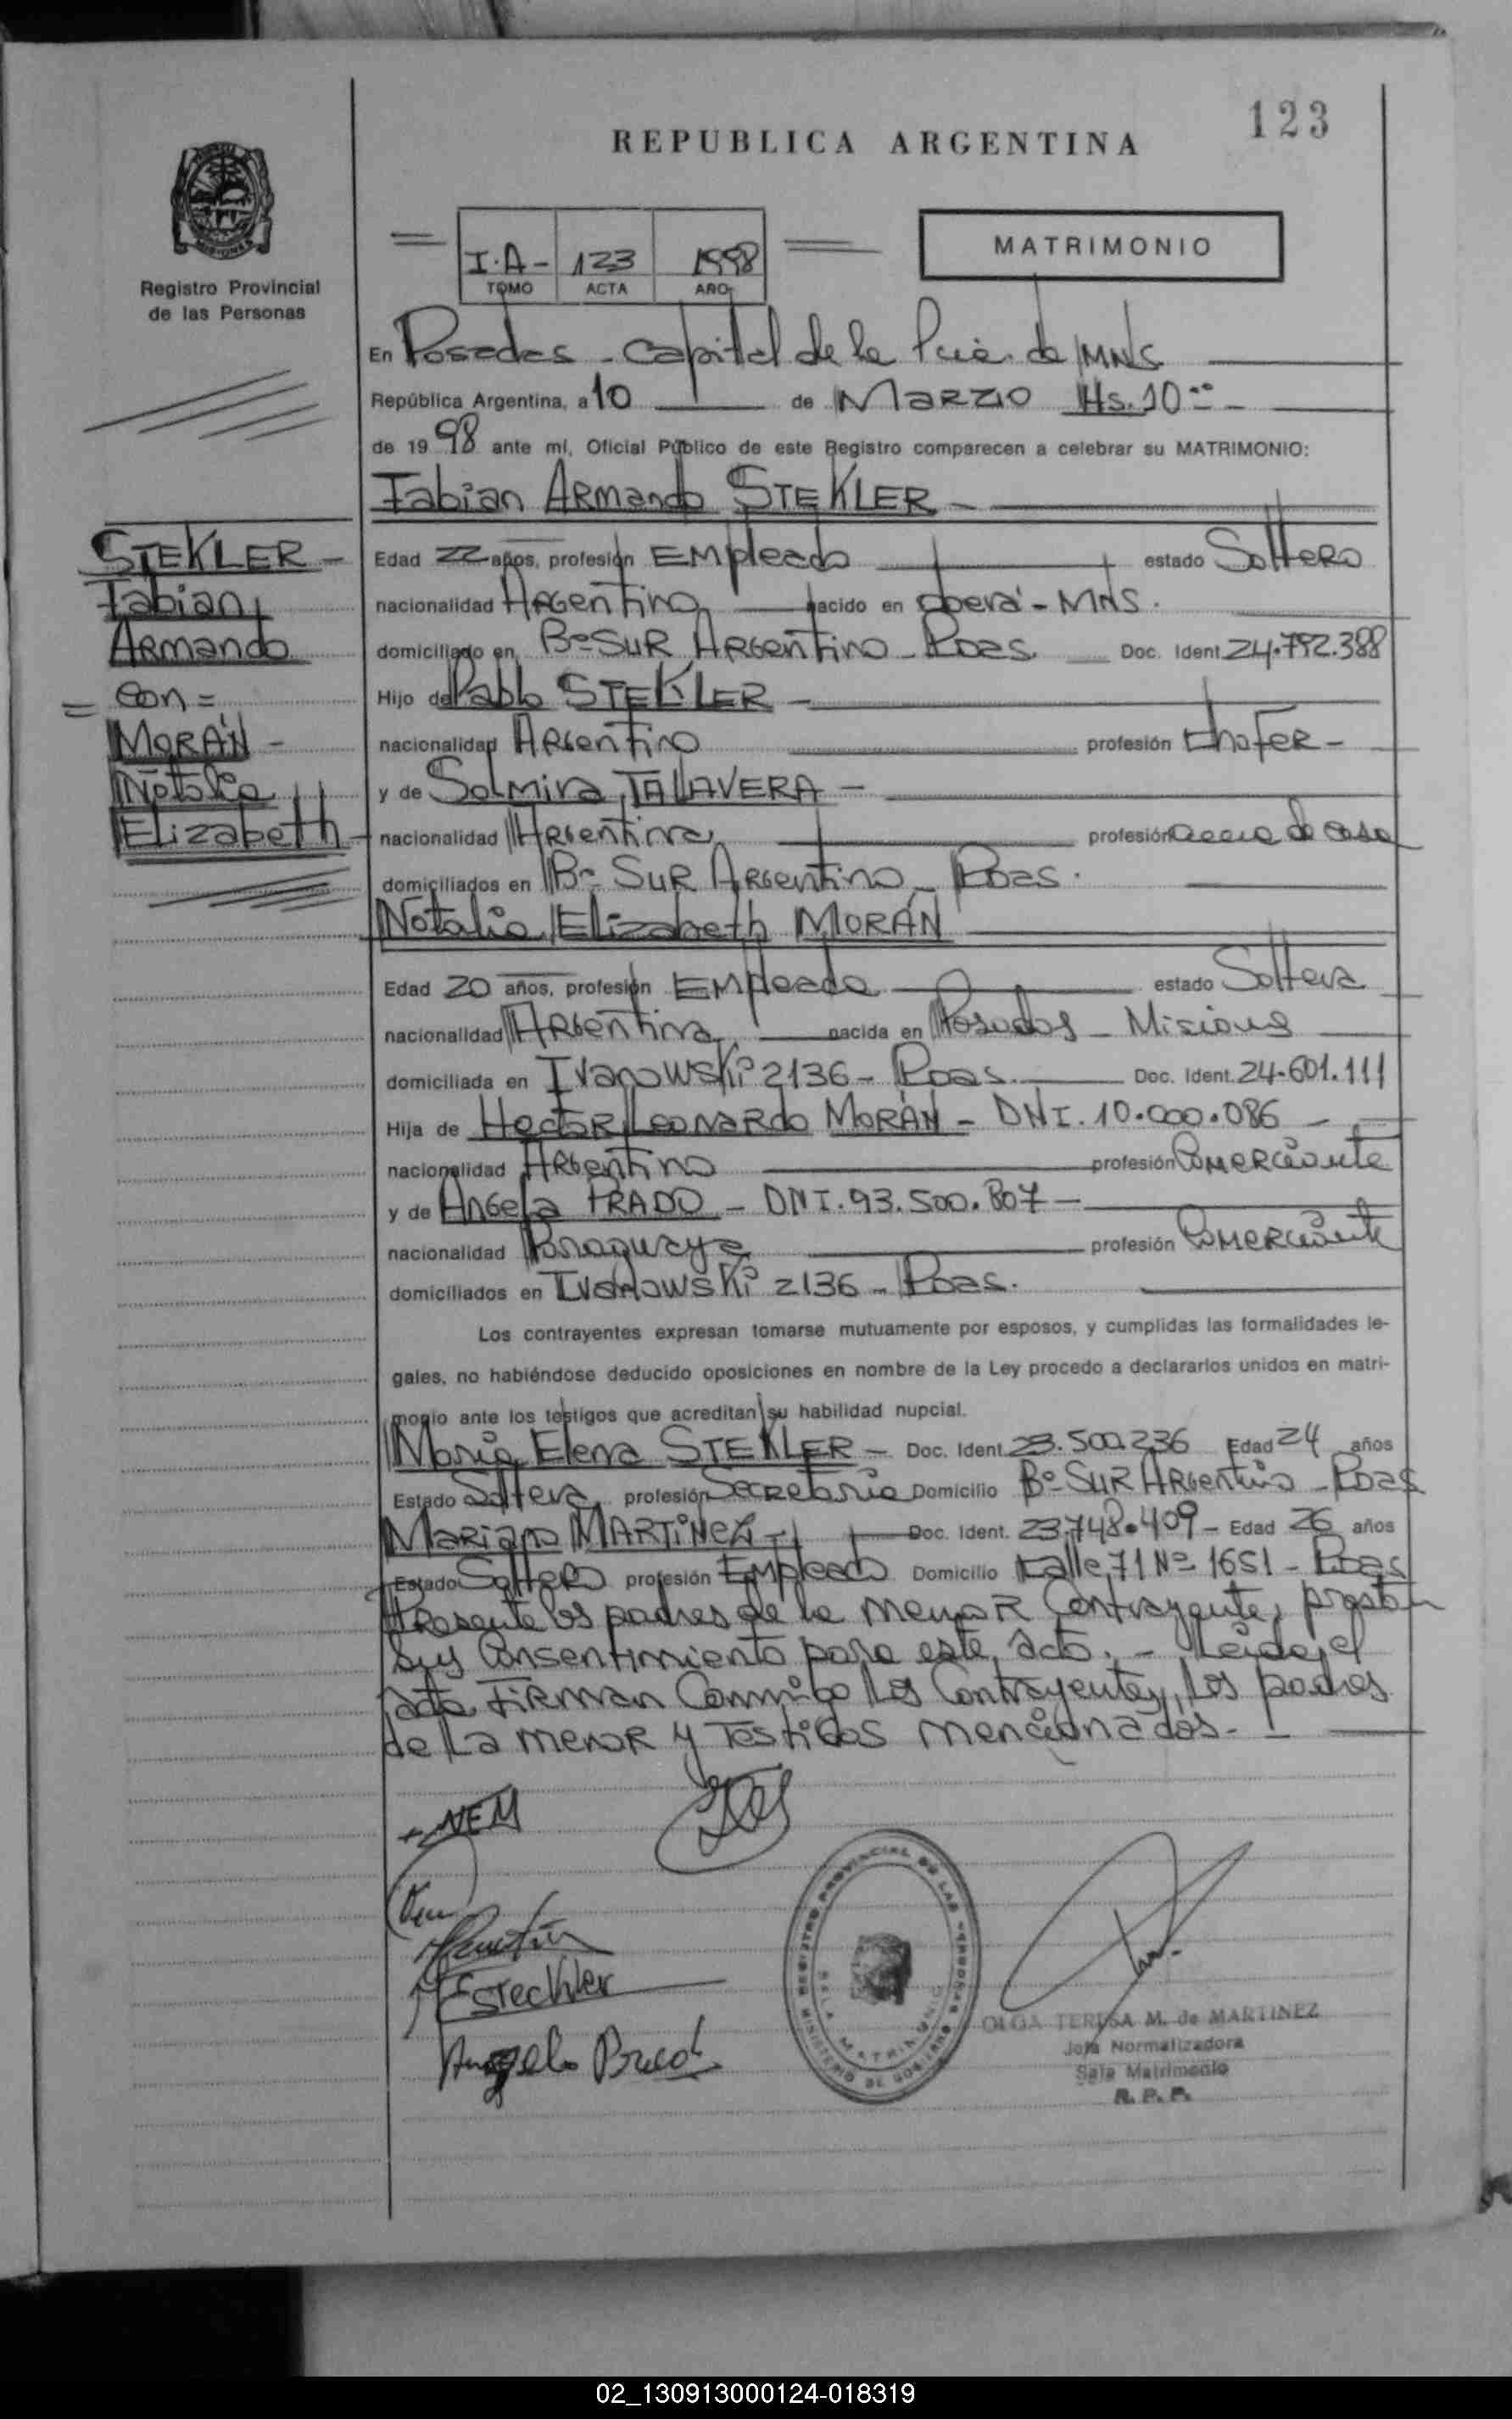 123
REPUBLICA ARGENTINA
MISIONES
Registro Provincial
de las Personas
I.A- 123 1998
TOMO ACTA AÑO
MATRIMONIO
En Posadas - Capital de la Pcia. de MNS
República Argentina, a 10 de MARZO Hs. 10
de 1998 ante mí, Oficial Público de este Registro comparecen a celebrar su MATRIMONIO:
Fabian ARmando STEKLER -
STEKLER -
Fabian
ARmando
= con =
MORÁN -
Natalia
Elizabeth -
Edad 22 años, profesión EMpleado estado SolteRo
nacionalidad ARgentino nacido en oberá - MNS.
domiciliado en Bº SUR ARgentino - Pdas. Doc. Ident. 24.792.388
Hijo de Pablo STEKLER -
nacionalidad ARgentino profesión choFeR -
y de Solmira TALLAVERA -
nacionalidad ARgentina profesión de casa
domiciliados en Bº SUR ARgentino - Pdas.
Natalia Elizabeth MORÁN
Edad 20 años, profesión EMpleada estado Soltera
nacionalidad ARgentina nacida en Posadas - Misiones
domiciliada en Ivanowski 2136 - Pdas. Doc. Ident. 24.601.111
Hija de HectoR Leonardo MORÁN - DNI. 10.000.086 -
nacionalidad ARgentino profesión Comerciante
y de Angela PRADO - DNI. 93.500.807 -
nacionalidad Paraguaya profesión Comerciante
domiciliados en Ivanowski 2136 - Pdas.
Los contrayentes expresan tomarse mutuamente por esposos, y cumplidas las formalidades le-
gales, no habiéndose deducido oposiciones en nombre de la Ley procedo a declararlos unidos en matri-
monio ante los testigos que acreditan su habilidad nupcial.
María Elena STEKLER - Doc. Ident. 23.500.236 Edad 24 años
Estado Soltera profesión Secretaria Domicilio Bº SUR ARgentino - Pdas
Mariano MARTiNEZ - Doc. Ident. 23.748.409 - Edad 26 años
Estado Soltero profesión EMpleado Domicilio Calle 71 Nº 1651 - Pdas
Presente los padres de la menoR Contrayente, prestan
sus Consentimiento para este acto. - Leida el
acta FiRman Conmigo los Contrayentes, los padres
de la menoR y Testigos mencionados. -
NEM
Estechler
Angela Prado
REGISTRO PROVINCIAL DE LAS PERSONAS
MINISTERIO DE GOBIERNO
OLGA TERESA M. de MARTINEZ
Jefa Normalizadora
Sala Matrimonio
R. P. P.
02_130913000124-018319